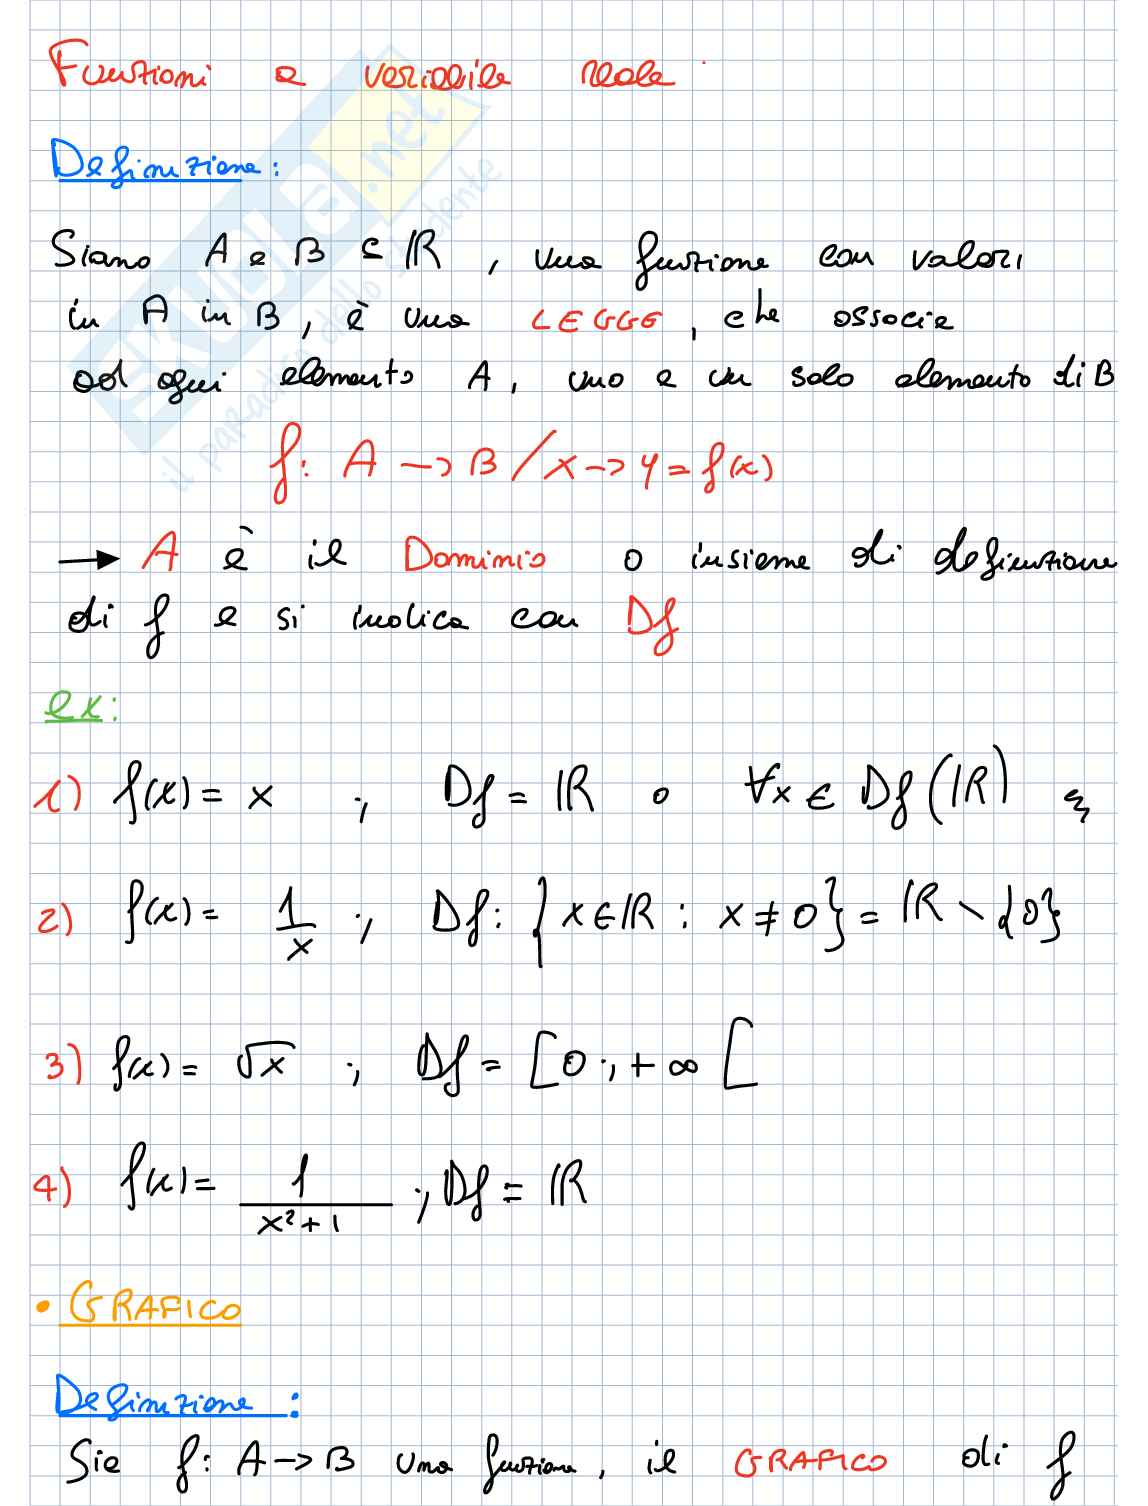 Funzioni a variabile reale
Definizione:
Siano A e B ⊆ ℝ, una funzione con valori
in A in B, è una LEGGE, che associa
ad ogni elemento A, uno e un solo elemento di B
f: A → B / x → y = f(x)
→ A è il Dominio o insieme di definizione
di f e si indica con Df
ex:
1) f(x) = x ; Df = ℝ o ∀x ∈ Df (ℝ)
2) f(x) = 1/x ; Df: {x ∈ ℝ : x ≠ 0} = ℝ \ {0}
3) f(x) = √x ; Df = [0 ; +∞ [
4) f(x) = 1/(x²+1) ; Df = ℝ
• GRAFICO
Definizione:
Sia f: A → B una funzione, il GRAFICO di f
SKUOLA.net
il paradiso dello studente